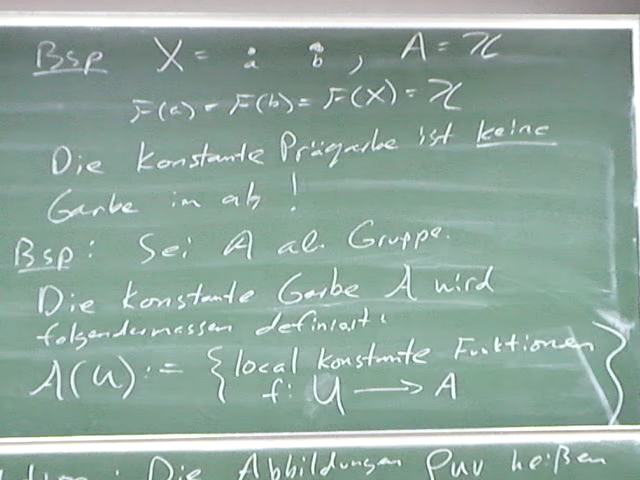 Bsp X = ȧ ḃ , A = ℤ
F(a) = F(b) = F(X) = ℤ
Die konstante Prägarbe ist keine
Garbe im allg !
Bsp: Sei A ab. Gruppe.
Die konstante Garbe A wird
folgendermassen definiert:
A(U) := { local konstante Funktionen
f: U → A }
: Die Abbildungen ρuv heißen